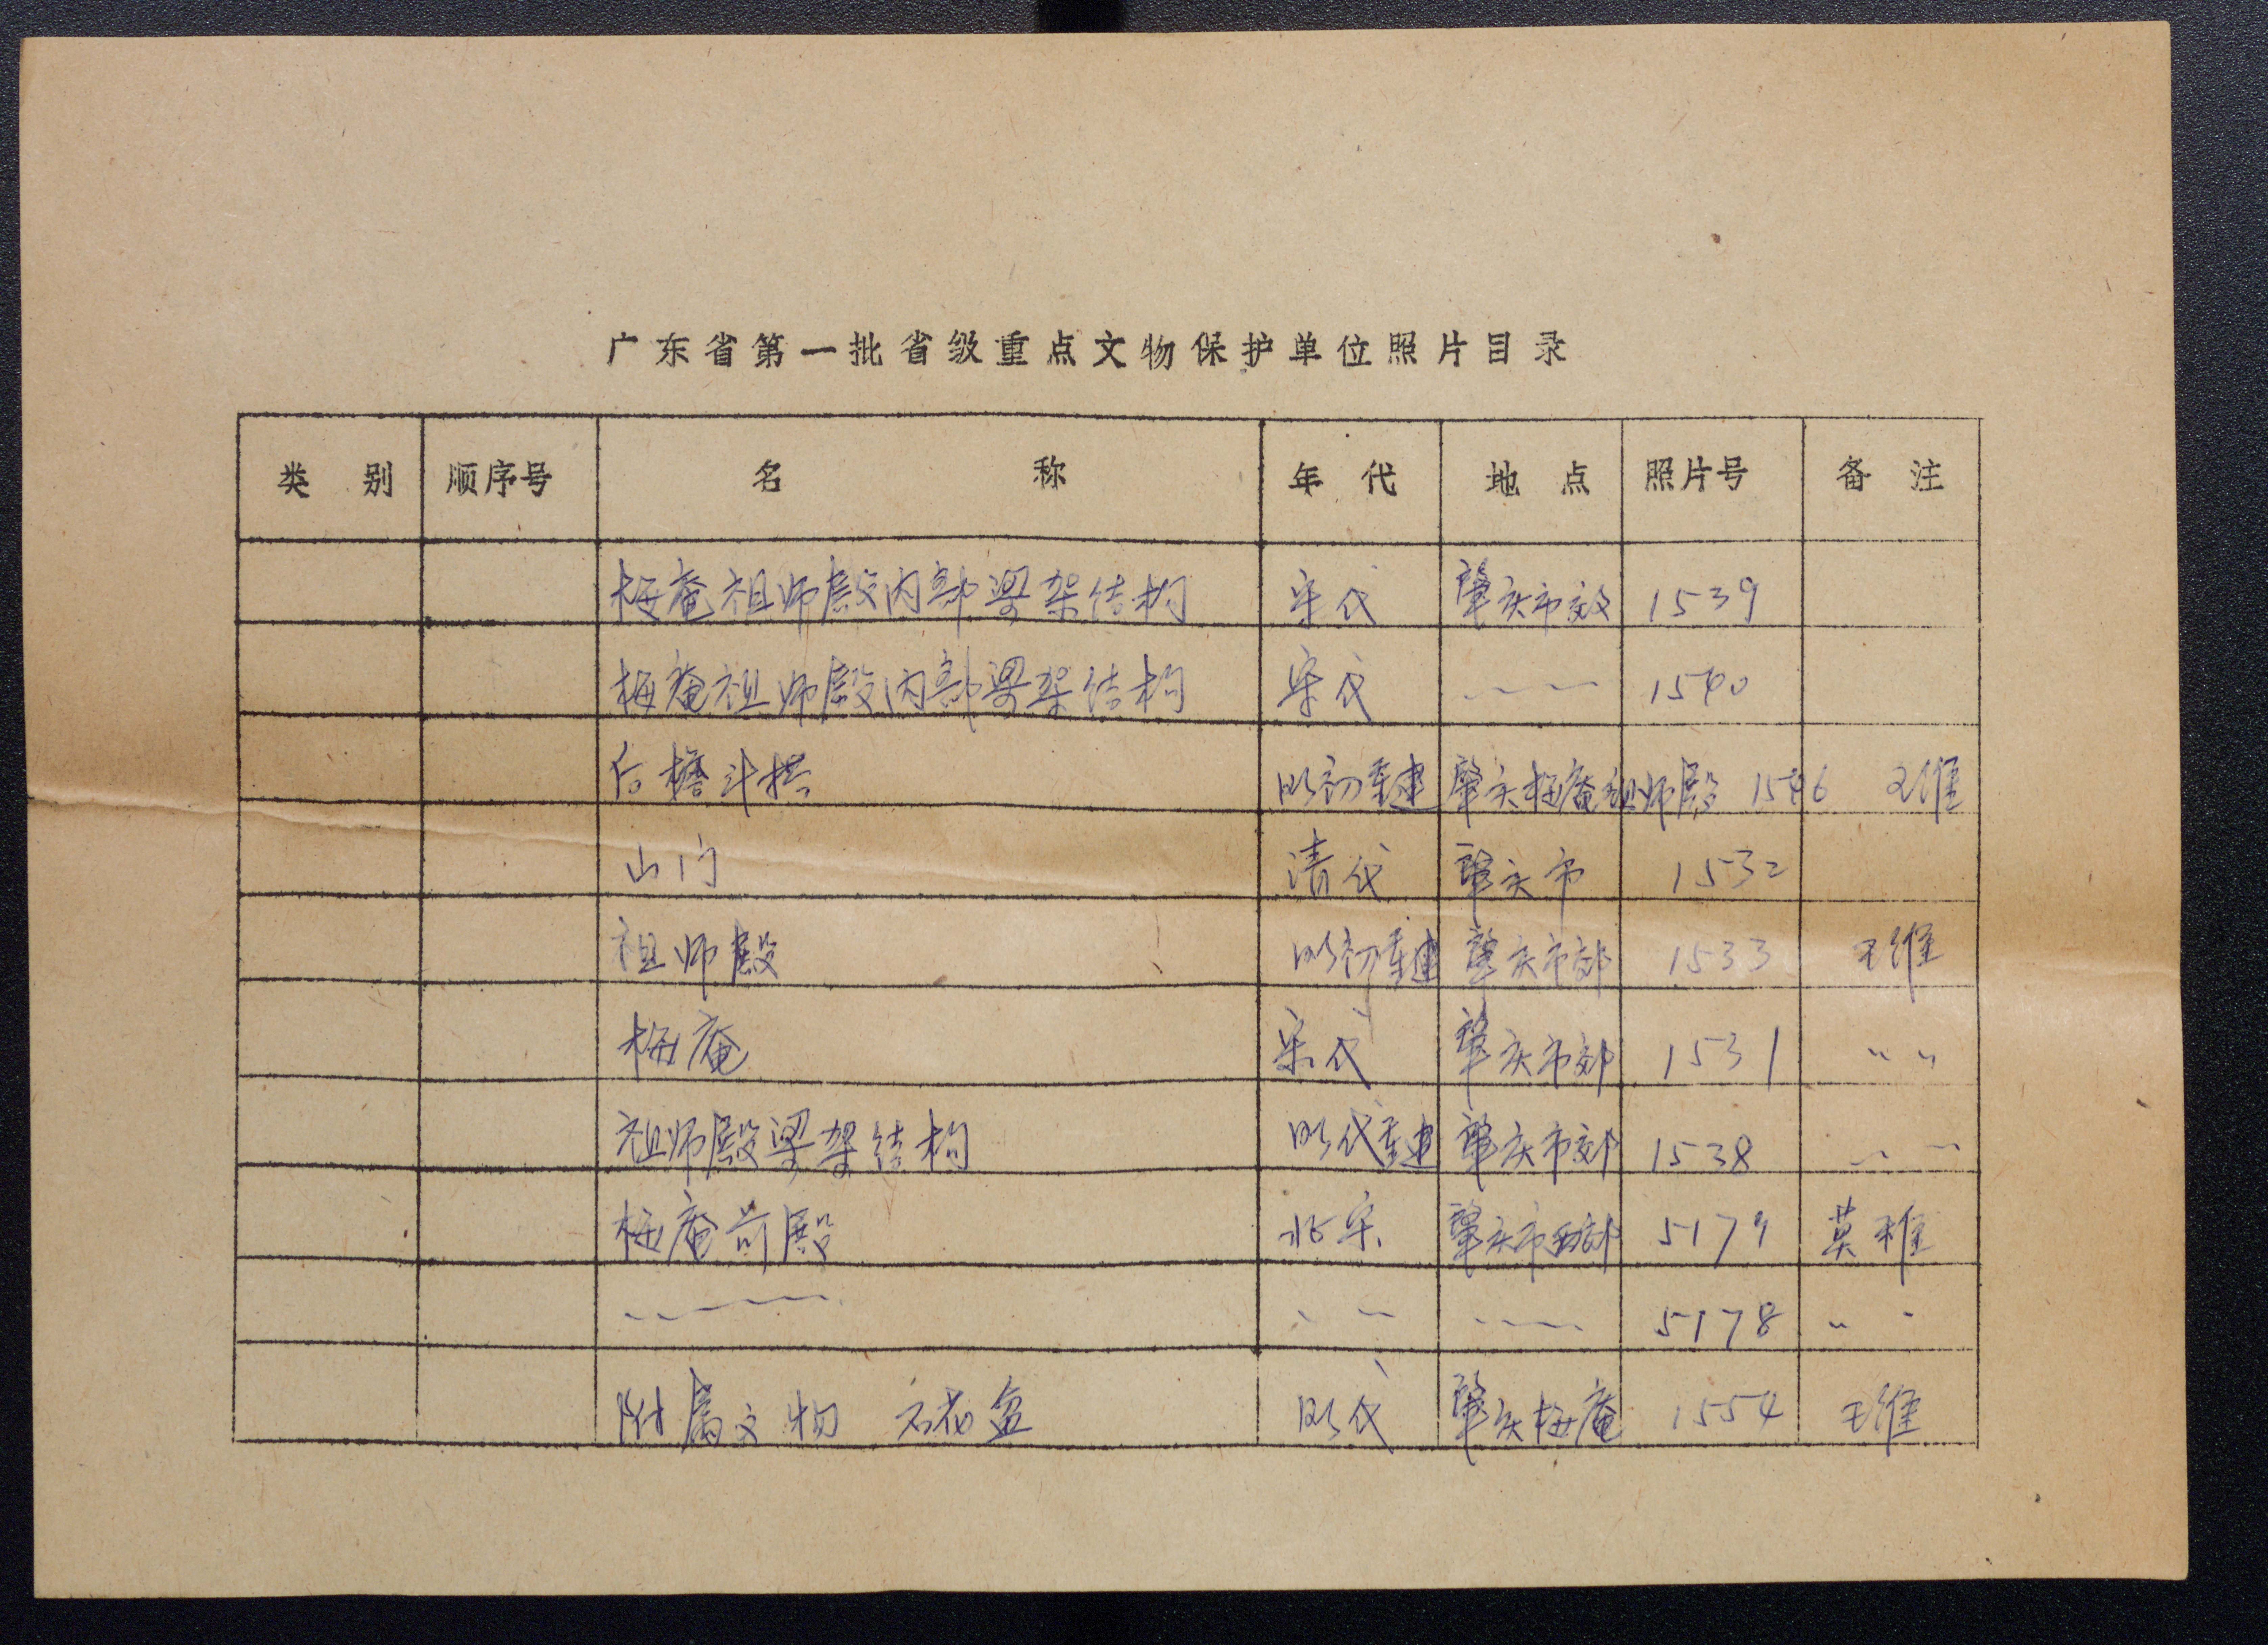 广东省第一批省级重点文物保护单位照片目录
类别 顺序号 名称 年代 地点 照片号 备注
梅庵祖师殿内部梁架结构 宋代 肇庆市效 1539
梅庵祖师殿内部梁架结构 宋代 〃 〃 1540
后檐斗拱 明初重建 肇庆梅庵祖师殿 1546 王维
山门 清代 肇庆市 1532
祖师殿 明初重建 肇庆市郊 1533 王维
梅庵 宋代 肇庆市郊 1531 〃 〃
祖师殿梁架结构 明代重建 肇庆市郊 1538 〃 〃
梅庵前殿 北宋 肇庆市西郊 5179 莫稚
〃 〃 〃 〃 〃 〃 〃 5178 〃 〃
附属文物 石花盆 明代 肇庆梅庵 1554 王维